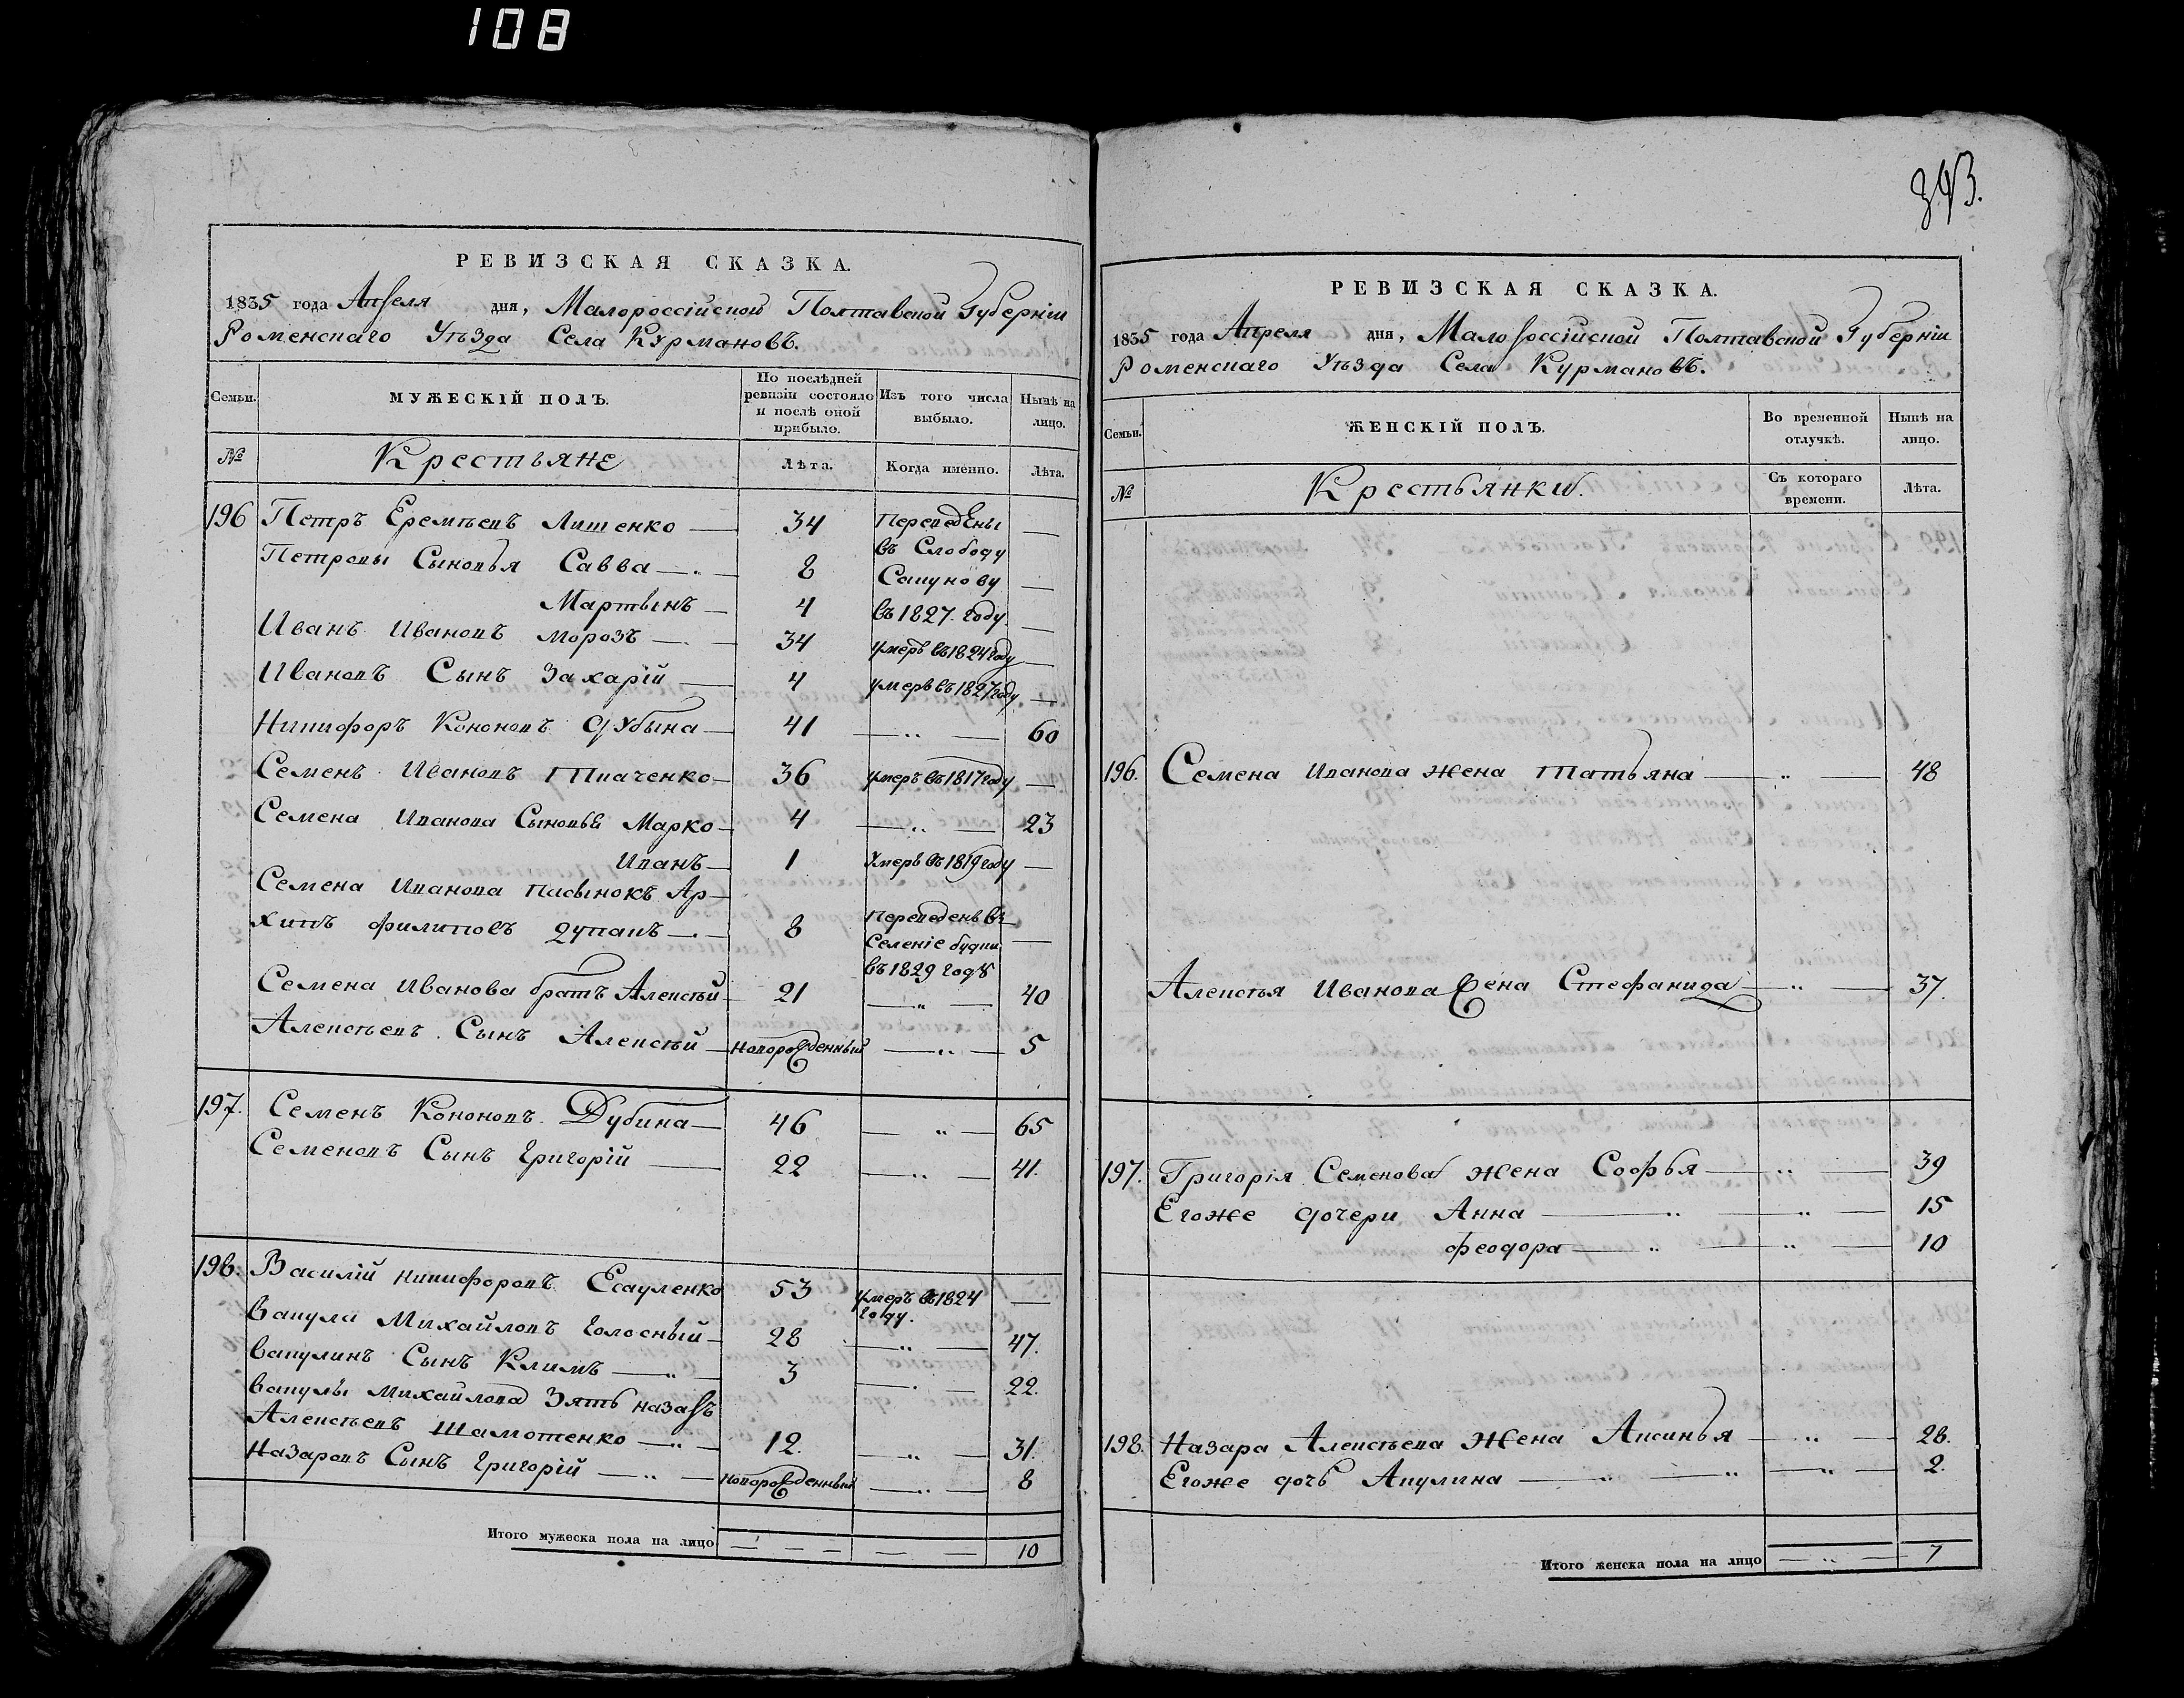 108
343.
РЕВИЗСКАЯ СКАЗКА.
1835 года Апреля дня, Малороссійской Полтавской Губерніи
Роменскаго Уѣзда Села Курмановъ.
Семьи. МУЖЕСКІЙ ПОЛЪ. По послѣдней ревизіи состояло и послѣ оной прибыло. Изъ того числа выбыло. Нынѣ на лицо.
№ Крестьяне Лѣта. Когда именно. Лѣта.
196 Петръ Еремѣевъ Лишенко — 34 Переведены —
въ Слободу
Петровы Сыновья Савва — 8 Сапунову —
Мартынъ — 4 въ 1827. году. —
Иванъ Ивановъ Морозъ — 34 умеръ въ 1824 году —
Ивановъ Сынъ Захарій — 4 умеръ въ 1827 году —
Никифоръ Кононовъ Дубина — 41 — „ — 60
Семенъ Ивановъ Ткаченко — 36 умеръ въ 1817 году —
Семена Иванова Сыновья Марко — 4 — „ — 23
Иванъ — 1 Умеръ въ 1819 году —
Семена Иванова пасынокъ Ар-
хипъ Филиповъ — „ — 8 Переведенъ въ —
Селеніе Будки
въ 1829 году
Семена Иванова братъ Алексѣй — 21 — „ — 40
Алексѣевъ Сынъ Алексѣй — Новорожденный — „ — 5
197. Семенъ Кононовъ Дубина — 46 — „ — 65
Семеновъ Сынъ Григорій — 22 — „ — 41.
198. Василій Никифоровъ Есауленко 53 умеръ въ 1824 —
году.
Вакула Михайловъ Голосный — 28 — „ — 47.
Вакулинъ Сынъ Климъ — „ — 3 — „ — 22.
Вакулы Михайлова Зять Назаръ
Алексѣевъ Шамотенко — „ — 12. — „ — 31.
Назаровъ Сынъ Григорій — „ — Новорожденный — „ — 8
Итого мужеска пола на лицо — — — — — 10
РЕВИЗСКАЯ СКАЗКА.
1835 года Апреля дня, Малороссійской Полтавской Губерніи
Роменскаго Уѣзда Села Курмановъ.
Семьи. ЖЕНСКІЙ ПОЛЪ. Во временной отлучкѣ. Нынѣ на лицо.
№ Крестьянки. Съ котораго времени. Лѣта.
196. Семена Иванова жена Татьяна — „ — 48
Алексѣя Иванова жена Стефанида — „ — 37.
197. Григорія Семенова жена Софья — „ — 39
Егоже дочери Анна — „ — „ — 15
Феодора — „ — „ — 10
198. Назара Алексѣева Жена Аксинья — „ — 28.
Егоже дочь Акулина — „ — „ — „ — 2.
Итого женска пола на лицо — „ — 7